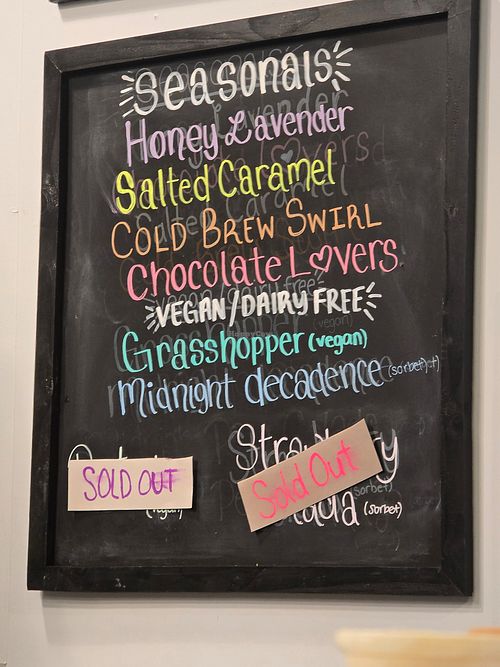 Seasonals
Honey Lavender
Salted Caramel
COLD BREW SWIRL
Chocolate Lovers
VEGAN/DAIRY FREE
Grasshopper (vegan)
Midnight decadence (sorbet)
SOLD OUT
(vegan)
Sold Out
(sorbet)